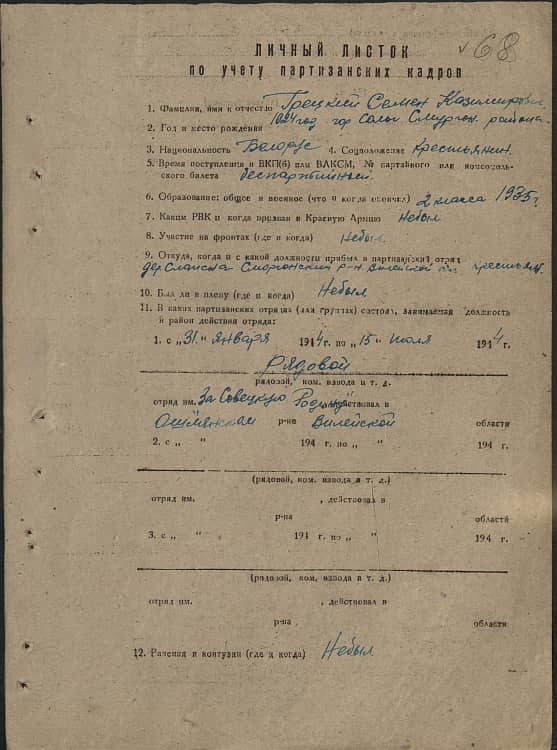 68
ЛИЧНЫЙ ЛИСТОК
по учету партизанских кадров
1. Фамилия, имя и отчество Грецкий Семен Казимирович
1924 год гор Солы Сморгон. района
2. Год и место рождения
3. Национальность Белорус 4. Соцположение Крестьянин.
5. Время поступления в ВКП(б) или ВЛКСМ, № партийного или комсомоль-
ского билета беспартийный.
6. Образование: общее и военное (что и когда окончил) 2 класса 1935 г.
7. Каким РВК и когда призван в Красную Армию Небыл
8. Участие на фронтах (где и когда) Небыл.
9. Откуда, когда и с какой должности прибыл в партизанский отряд
дер. Сморгонский р-н Вилейской обл. крестьян.
10. Был ли в плену (где и когда) Небыл
11. В каких партизанских отрядах (или группах) состоял, занимаемая должность
и район действия отряда:
1. с „31" января 1944 г. по „15" июля 1944 г.
Рядовой
рядовой, ком. взвода и т. д.
отряд им. За Советскую Родину действовал в
Ошмянском р-на Вилейской области
2. с „ " 194 г. по „ " 194 г.
(рядовой, ком. взвода и т. д.)
отряд им. , действовал в
р-на области
3. с „ " 194 г. по „ " 194 г.
(рядовой, ком. взвода и т. д.)
отряд им. , действовал в
р-на области
12. Ранения и контузии (где и когда) Небыл